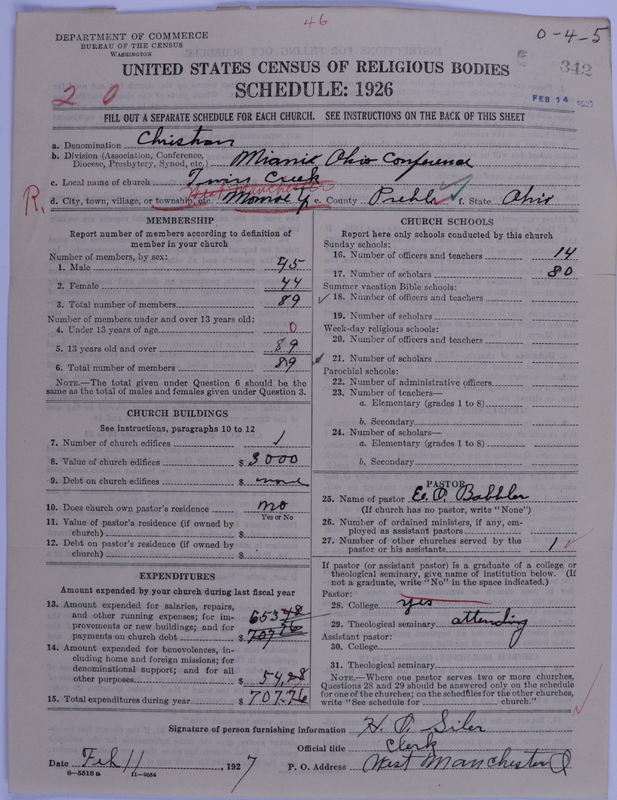 46
DEPARTMENT OF COMMERCE
BUREAU OF THE CENSUS
WASHINGTON
0-4-5
342
FEB 14 1927
UNITED STATES CENSUS OF RELIGIOUS BODIES
SCHEDULE: 1926
2 0
FILL OUT A SEPARATE SCHEDULE FOR EACH CHURCH. SEE INSTRUCTIONS ON THE BACK OF THIS SHEET
a. Denomination Christian
b. Division (Association, Conference, Diocese, Presbytery, Synod, etc.) Miami Ohio Conference
c. Local name of church Twin Creek
West Manchester
R.
d. City, town, village, or township, etc. Monroe e. County Preble f. State Ohio
MEMBERSHIP
Report number of members according to definition of
member in your church
Number of members, by sex:
1. Male 45
2. Female 44
3. Total number of members 89
Number of members under and over 13 years old:
4. Under 13 years of age 0
5. 13 years old and over 89
6. Total number of members 89
NOTE.—The total given under Question 6 should be the
same as the total of males and females given under Question 3.
CHURCH BUILDINGS
See instructions, paragraphs 10 to 12
7. Number of church edifices 1
8. Value of church edifices $ 3000
9. Debt on church edifices $ none
10. Does church own pastor's residence no
Yes or No
11. Value of pastor's residence (if owned by
church) $
12. Debt on pastor's residence (if owned by
church) $
EXPENDITURES
Amount expended by your church during last fiscal year
13. Amount expended for salaries, repairs,
and other running expenses; for im-
provements or new buildings; and for
payments on church debt $ 653.48
707.76
14. Amount expended for benevolences, in-
cluding home and foreign missions; for
denominational support; and for all
other purposes $ 54.28
15. Total expenditures during year $ 707.76
CHURCH SCHOOLS
Report here only schools conducted by this church
Sunday schools:
16. Number of officers and teachers 14
17. Number of scholars 80
Summer vacation Bible schools:
18. Number of officers and teachers
19. Number of scholars
Week-day religious schools:
20. Number of officers and teachers
21. Number of scholars
Parochial schools:
22. Number of administrative officers
23. Number of teachers—
a. Elementary (grades 1 to 8)
b. Secondary
24. Number of scholars—
a. Elementary (grades 1 to 8)
b. Secondary
PASTOR
25. Name of pastor
(If church has no pastor, write "None")
26. Number of ordained ministers, if any, em-
ployed as assistant pastors
27. Number of other churches served by the
pastor or his assistants 1
If pastor (or assistant pastor) is a graduate of a college or
theological seminary, give name of institution below. (If
not a graduate, write "No" in the space indicated.)
Pastor:
28. College yes
29. Theological seminary attending
Assistant pastor:
30. College
31. Theological seminary
NOTE.—Where one pastor serves two or more churches,
Questions 28 and 29 should be answered only on the schedule
for one of the churches; on the schedules for the other churches,
write "See schedule for church."
Signature of person furnishing information H. P. Siler
Official title Clerk
Date Feb 11, 1927 P. O. Address West Manchester O
8-5518 a 11-9554